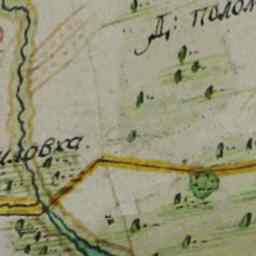 Д: полом
иловка.